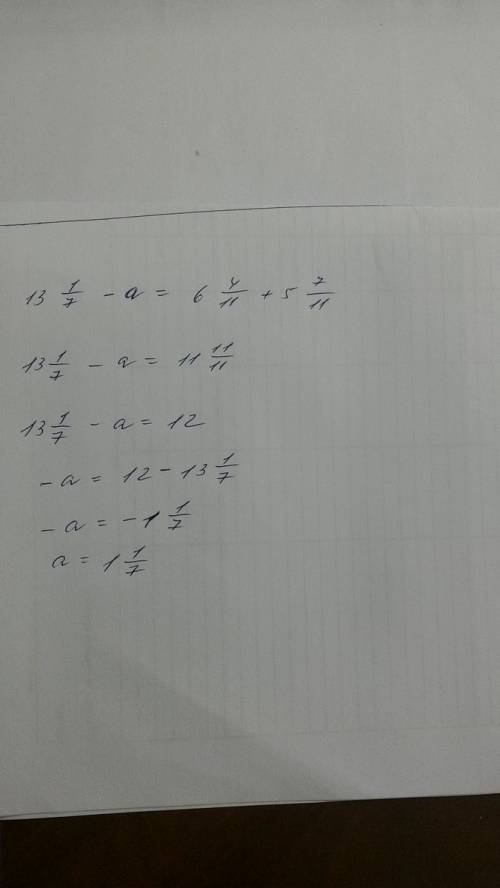 13 1/7 - a = 6 4/11 + 5 7/11
13 1/7 - a = 11 11/11
13 1/7 - a = 12
- a = 12 - 13 1/7
- a = - 1 1/7
a = 1 1/7